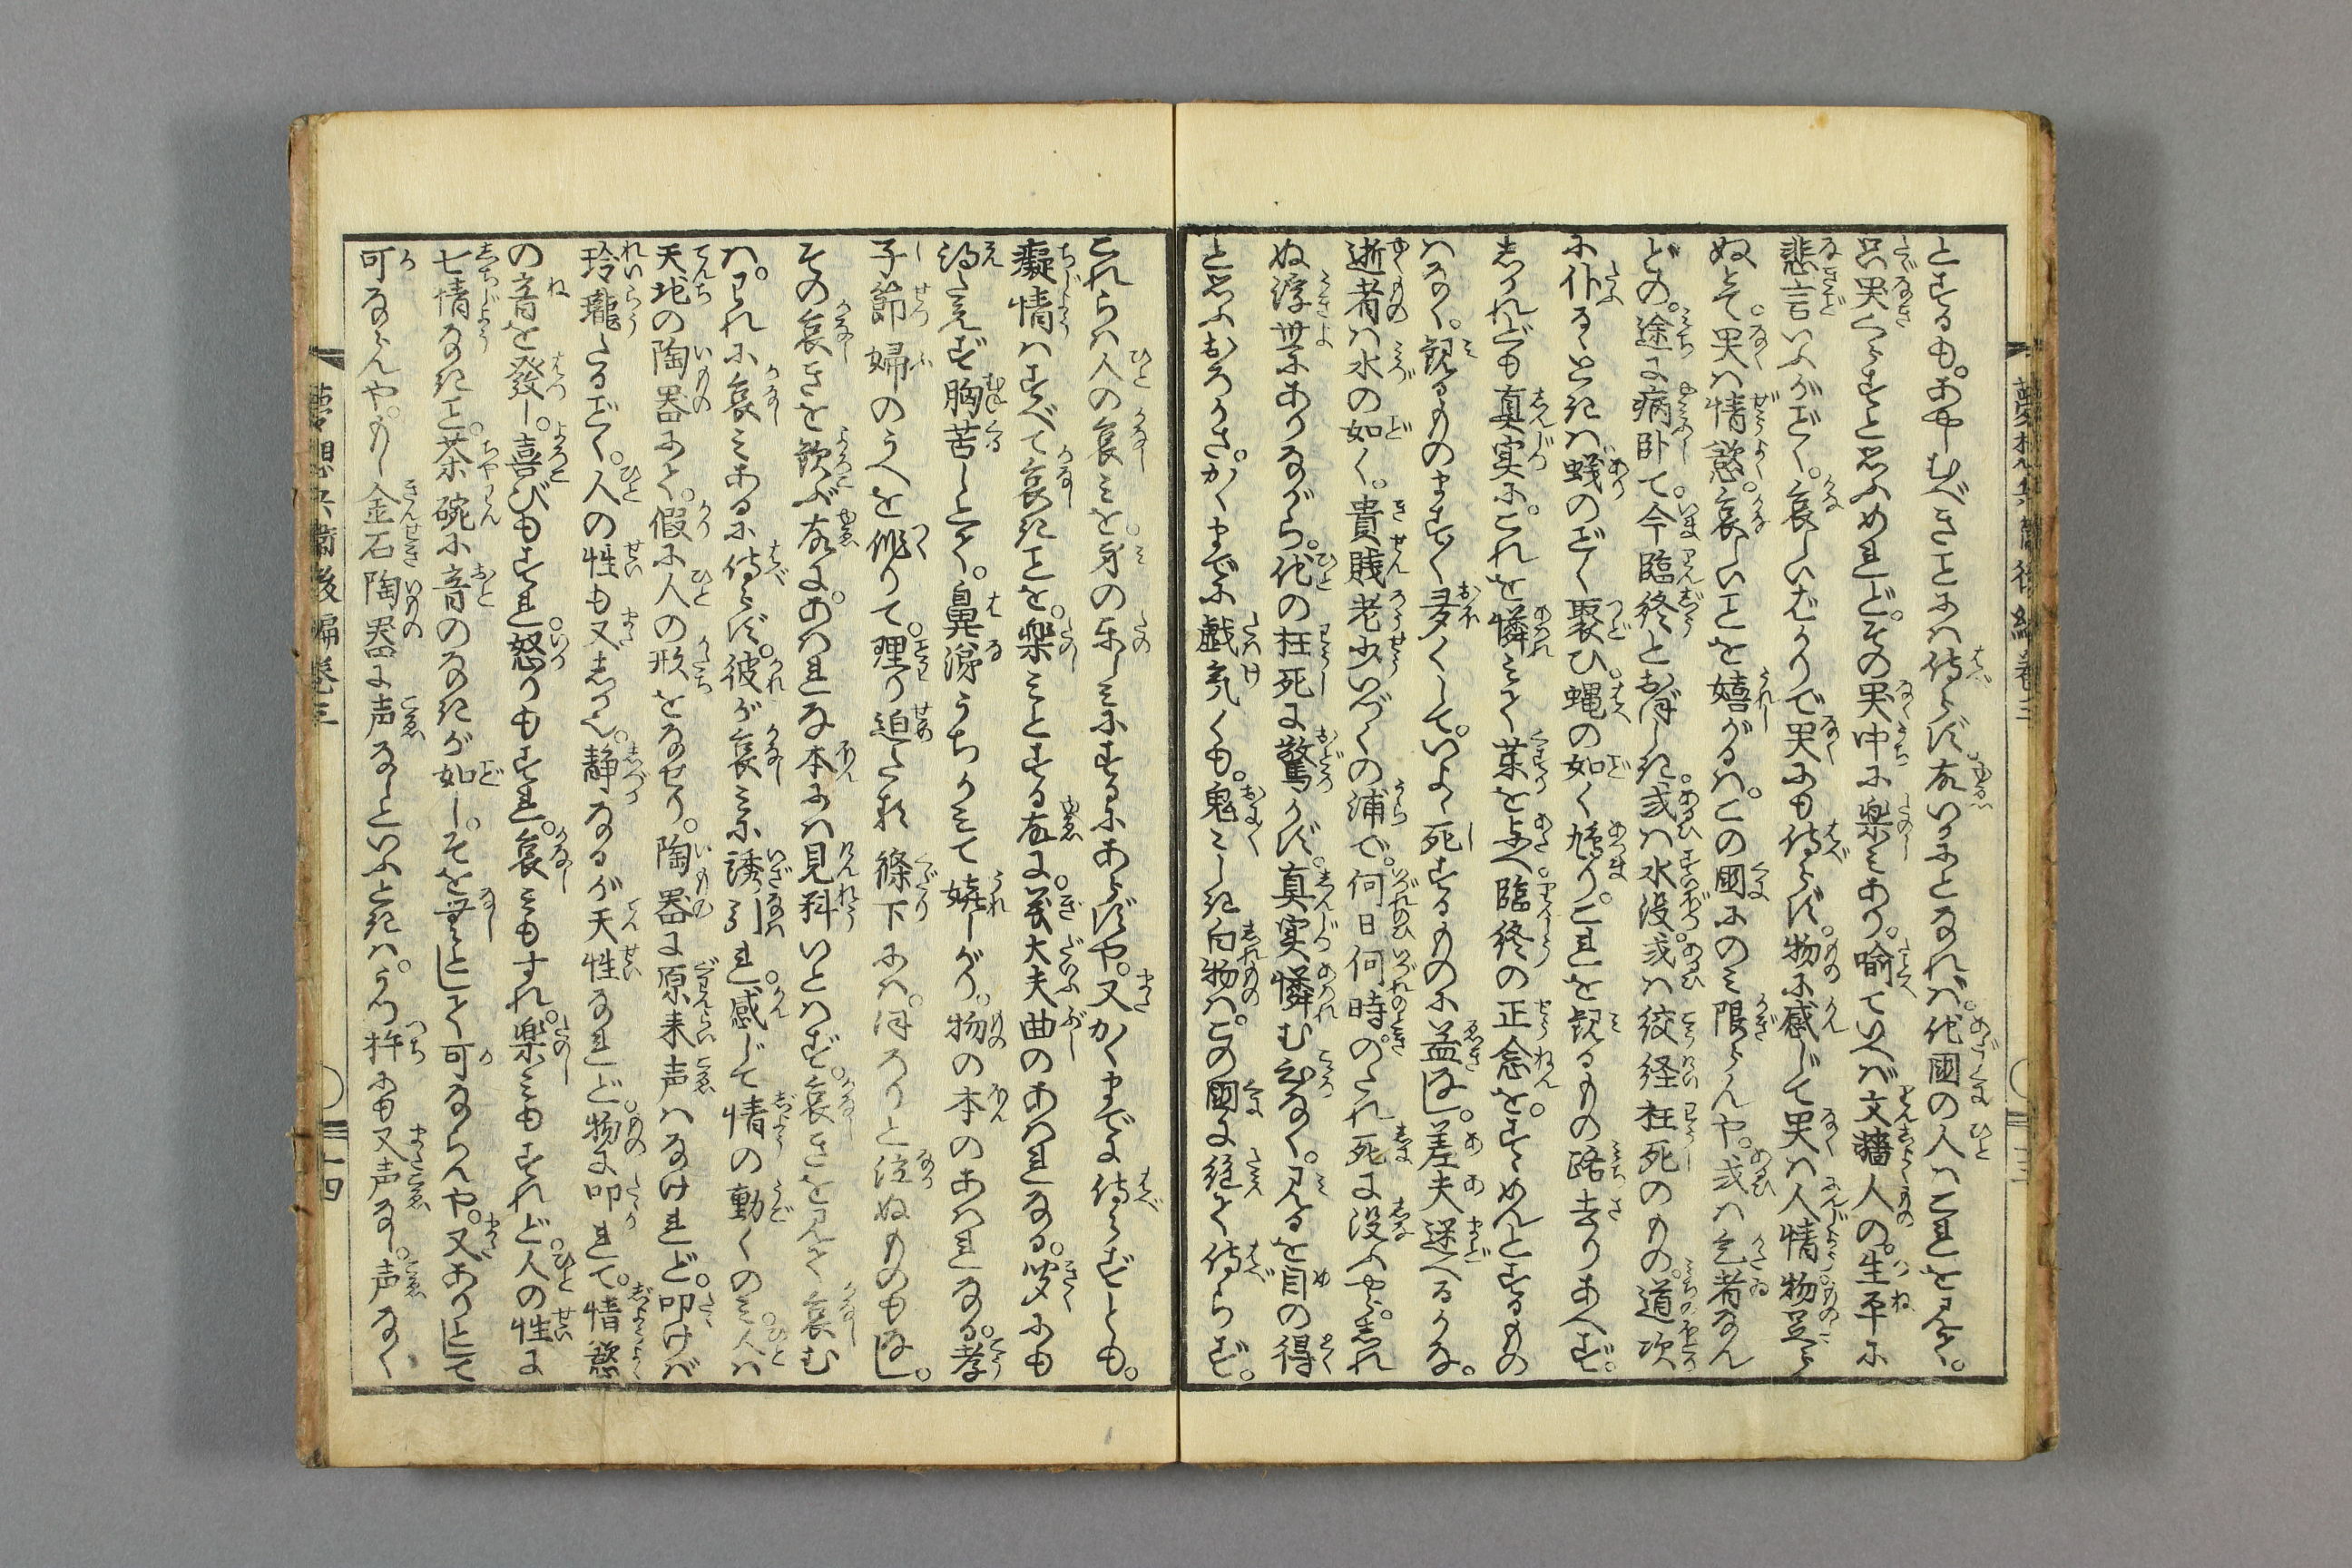 とするも。あやしむべきことにハ侍らず。故いかにとなれバ。他國の人ハこれを見て。
只哭くらすと思ふめれど。その哭中に楽ミあり。喩ていへバ文牆人の。生平に
悲言いふがごとく。哀しいばかりで哭にも侍らず。物に感じて哭ハ人情。物足ら
ぬとて。哭ハ情慾。哀しいことを嬉がるハ。この國にのミ限らんや。或ハ乞者なん
どの。途に病臥て。今臨終とおぼしき。或ハ水没。或ハ絞経枉死のもの。道次
に仆るゝときハ蟻のごとく聚ひ。蝿の如く鳩り。これを観るもの路去りあへず。
しかれども真実に。これを憐ミて薬を与へ。臨終の正念を。すゝめんとするもの
ハなく。観るものますます夛くして。いよゝ死するものに益なし。差夫迷へるかな。
逝者ハ水の如く。貴賤老少いづくの浦で。何日何時。のたれ死に没ふやら。しれ
ぬ浮世にありながら。他の枉死に驚かず。真実憐む心なく。見るを目の得
と思ふおろかさ。かくまでに戯気くも。鬼ミしき白物ハ。この國に絶て侍らず。
夢想兵衞後編巻三 十三
これらハ人の哀ミを。身の楽しミにするにあらずや。又かくまでに侍らずとも。
癡情ハすべて哀きことを。楽ミとする故に。義大夫曲のあハれなる。聞くにも
得たえず胸苦しとて。鼻涕うちかミて嬉しがり。物の本のあハれなる。孝
子節婦のうへを作りて。理り迫たる條下にハ。ほろりと泣ぬものもなし。
その哀きを歓ぶ故に。あハれな本にハ見料いとハず。哀きを見て哀む
ハ。われに哀ミあるに侍らず。彼が哀ミに誘引れ。感じて情の動くのミ。人ハ
天地の陶器にて。假に人の形をなせり。陶器に原来声ハなけれど。叩けバ
玲瓏たるごとく。人の性も又しかり。静なるが天性なれど。物に叩れて。情慾
の音を發し。喜びもすれ。怒りもすれ。哀ミもすれ。楽ミもすれど。人の性に
七情なきこと。茶碗に音のなきが如し。そを無しとして可ならんや。又ありとして
可ならんや。もし金石陶器に声なしといふときハ。うつ杵にも又声なし。声なく
夢想兵衞後編巻三 十四